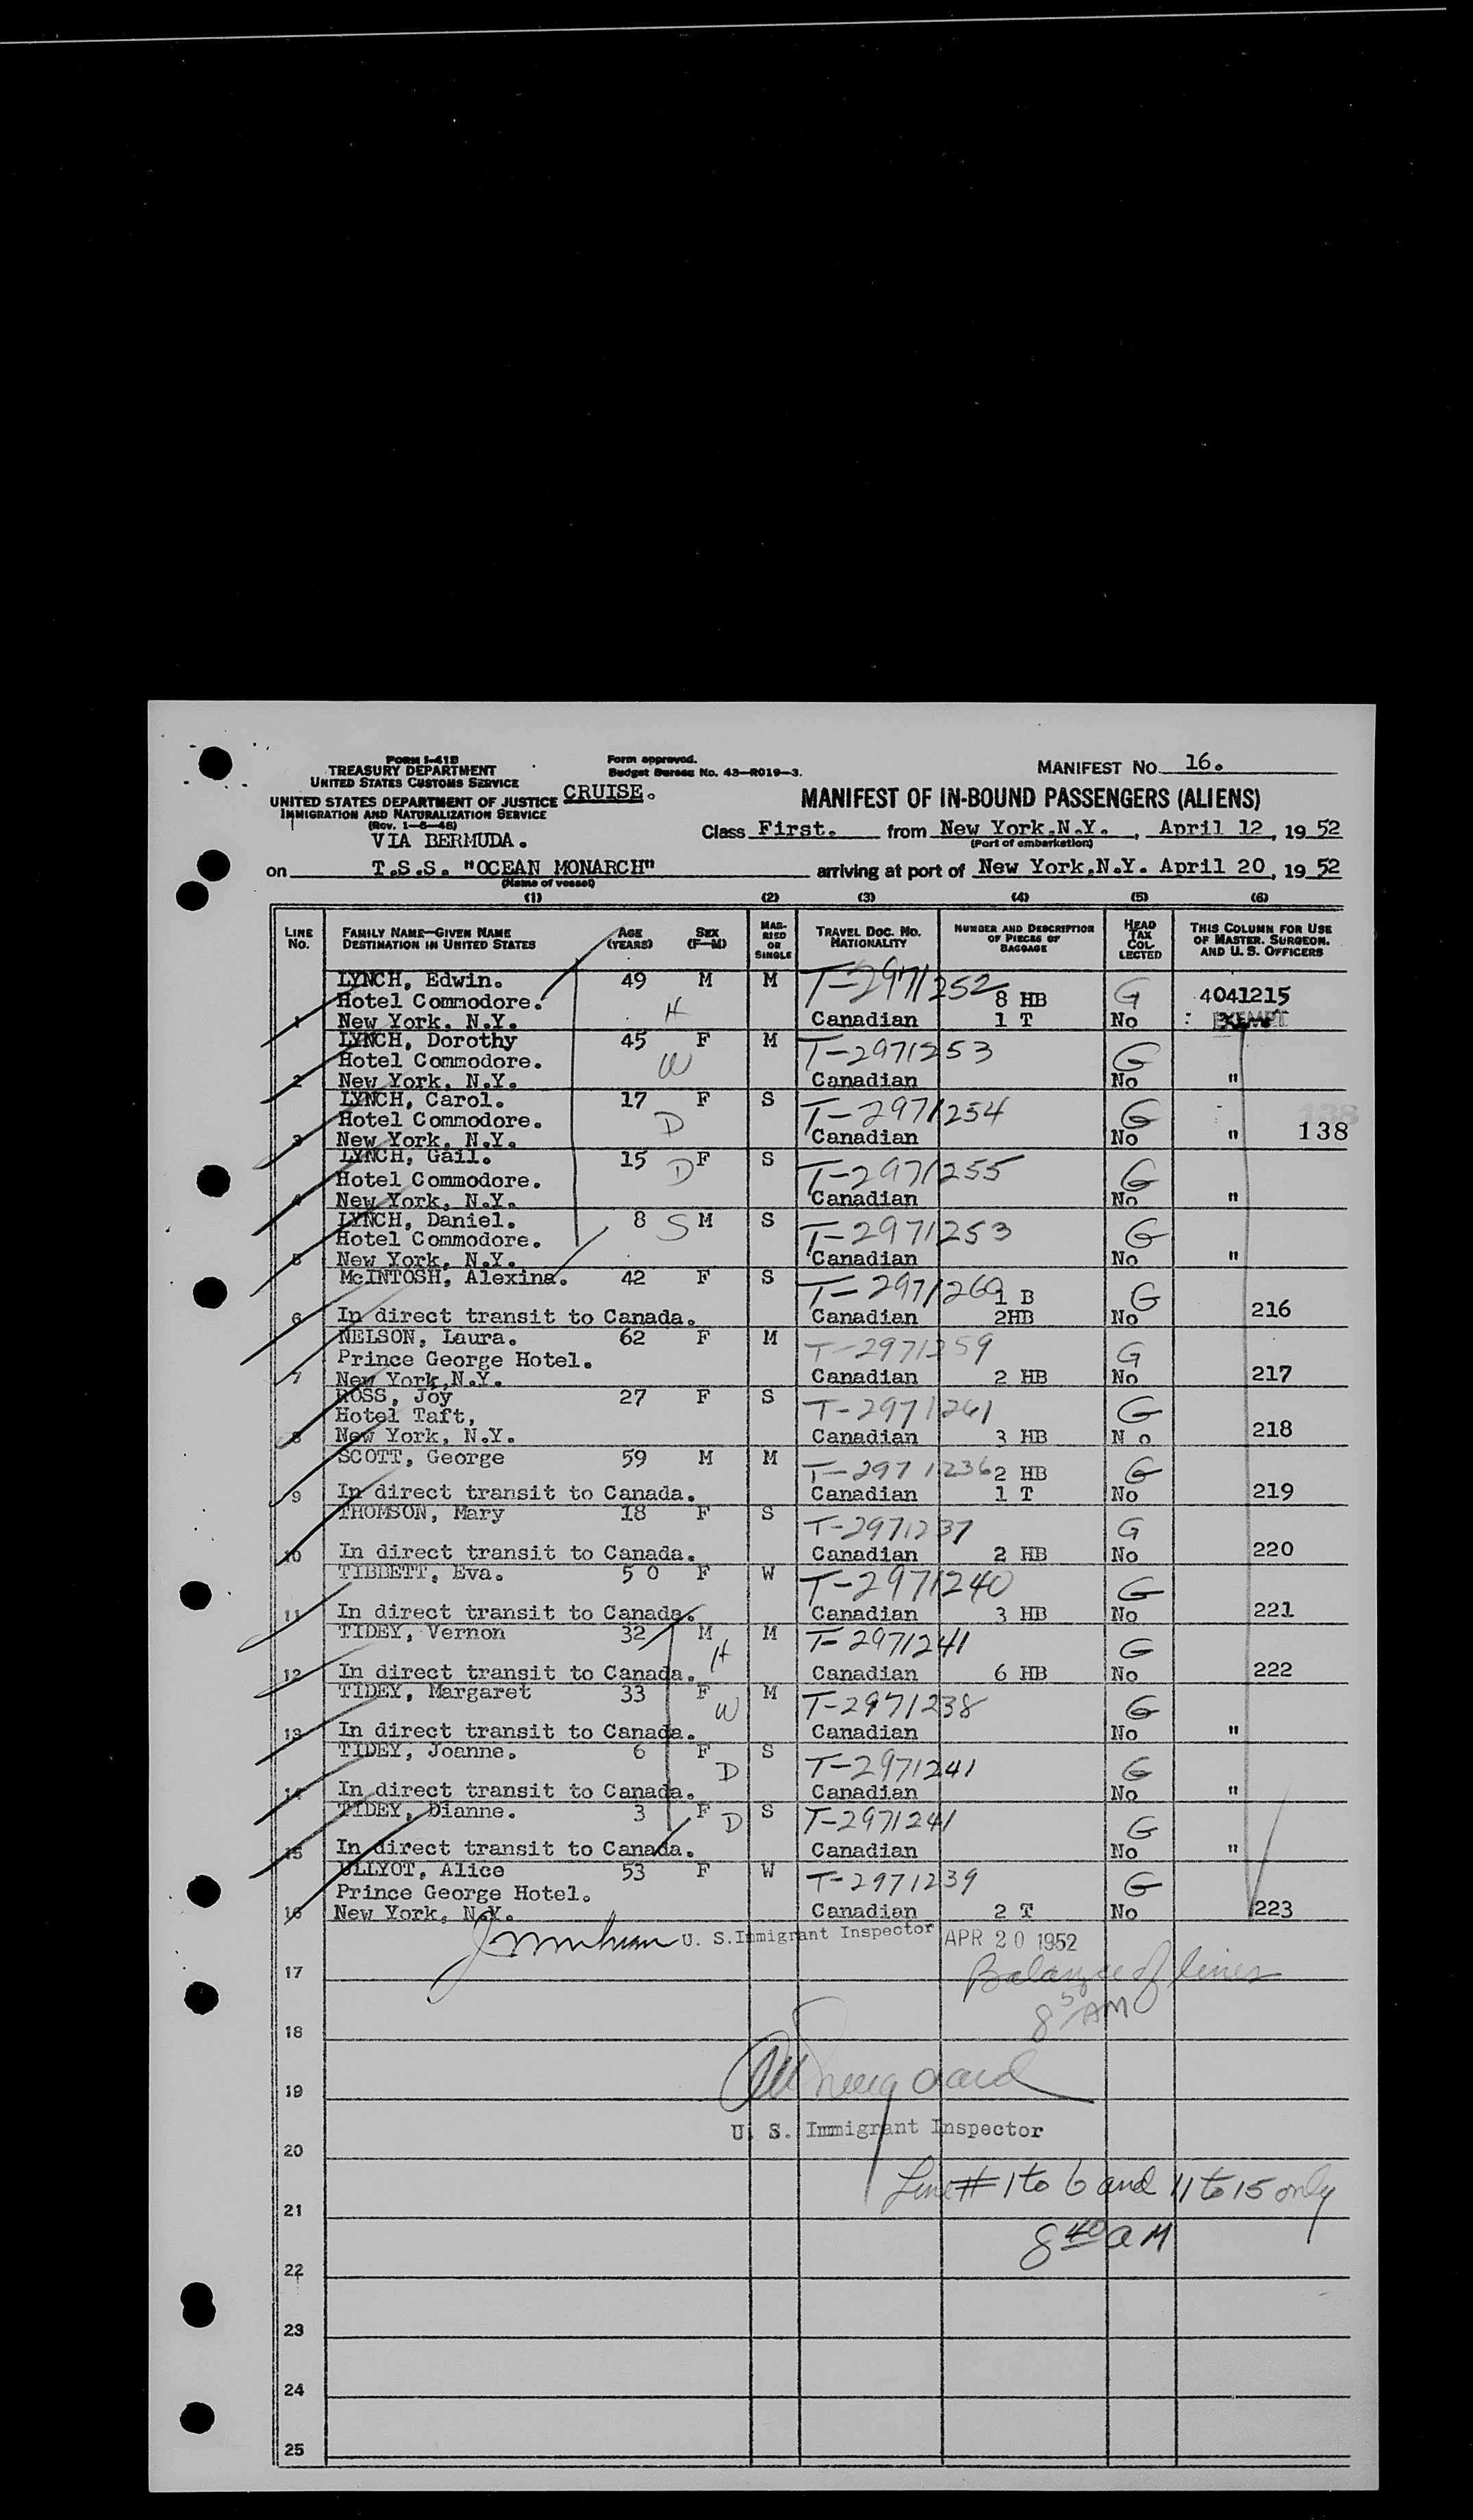 FORM I-415
TREASURY DEPARTMENT
UNITED STATES CUSTOMS SERVICE
UNITED STATES DEPARTMENT OF JUSTICE
IMMIGRATION AND NATURALIZATION SERVICE
(Rev. 1-5-48)
Form approved.
Budget Bureau No. 43-R019-3.
CRUISE.
VIA BERMUDA.
MANIFEST NO. 16.
MANIFEST OF IN-BOUND PASSENGERS (ALIENS)
Class First. from New York,N.Y. , April 12, 19 52
(Port of embarkation)
on T.S.S. "OCEAN MONARCH" arriving at port of New York,N.Y. April 20, 19 52
(Name of vessel)
(1) (2) (3) (4) (5) (6)
LINE NO. FAMILY NAME—GIVEN NAME DESTINATION IN UNITED STATES AGE (YEARS) SEX (F—M) MARRIED OR SINGLE TRAVEL DOC. NO. NATIONALITY NUMBER AND DESCRIPTION OF PIECES OF BAGGAGE HEAD TAX COLLECTED THIS COLUMN FOR USE OF MASTER, SURGEON, AND U. S. OFFICERS
LYNCH, Edwin. 49 M M T-2971252
Hotel Commodore. H 8 HB G 4041215
1 New York, N.Y. Canadian 1 T No EXEMPT
LYNCH, Dorothy 45 F M T-2971253
Hotel Commodore. W G
2 New York, N.Y. Canadian No "
LYNCH, Carol. 17 F S T-2971254
Hotel Commodore. D G
3 New York, N.Y. Canadian No " 138
LYNCH, Gail. 15 D F S T-2971255
Hotel Commodore. G
4 New York, N.Y. Canadian No "
LYNCH, Daniel. 8 S M S T-2971253
Hotel Commodore. G
5 New York, N.Y. Canadian No "
McINTOSH, Alexina. 42 F S T-2971260 1 B G
6 In direct transit to Canada. Canadian 2HB No 216
NELSON, Laura. 62 F M T-2971259
Prince George Hotel. G
7 New York,N.Y. Canadian 2 HB No 217
ROSS, Joy 27 F S T-2971261
Hotel Taft, G
8 New York, N.Y. Canadian 3 HB N o 218
SCOTT, George 59 M M T-2971236 2 HB G
9 In direct transit to Canada. Canadian 1 T No 219
THOMSON, Mary 18 F S T-2971237 G
10 In direct transit to Canada. Canadian 2 HB No 220
TIBBETT, Eva. 5 0 F W T-2971240 G
11 In direct transit to Canada. Canadian 3 HB No 221
TIDEY, Vernon 32 M H M T-2971241 G
12 In direct transit to Canada. Canadian 6 HB No 222
TIDEY, Margaret 33 F W M T-2971238 G
13 In direct transit to Canada. Canadian No "
TIDEY, Joanne. 6 F D S T-2971241 G
14 In direct transit to Canada. Canadian No "
TIDEY, Dianne. 3 F D S T-2971241 G
15 In direct transit to Canada. Canadian No "
ULLYOT, Alice 53 F W T-2971239
Prince George Hotel. G
16 New York, N.Y. Canadian 2 T No 223
U. S. Immigrant Inspector APR 20 1952
17 Balance of lines
8 AM
18
19
U. S. Immigrant Inspector
20
Line # 1 to 6 and 11 to 15 only
21
8 40 AM
22
23
24
25